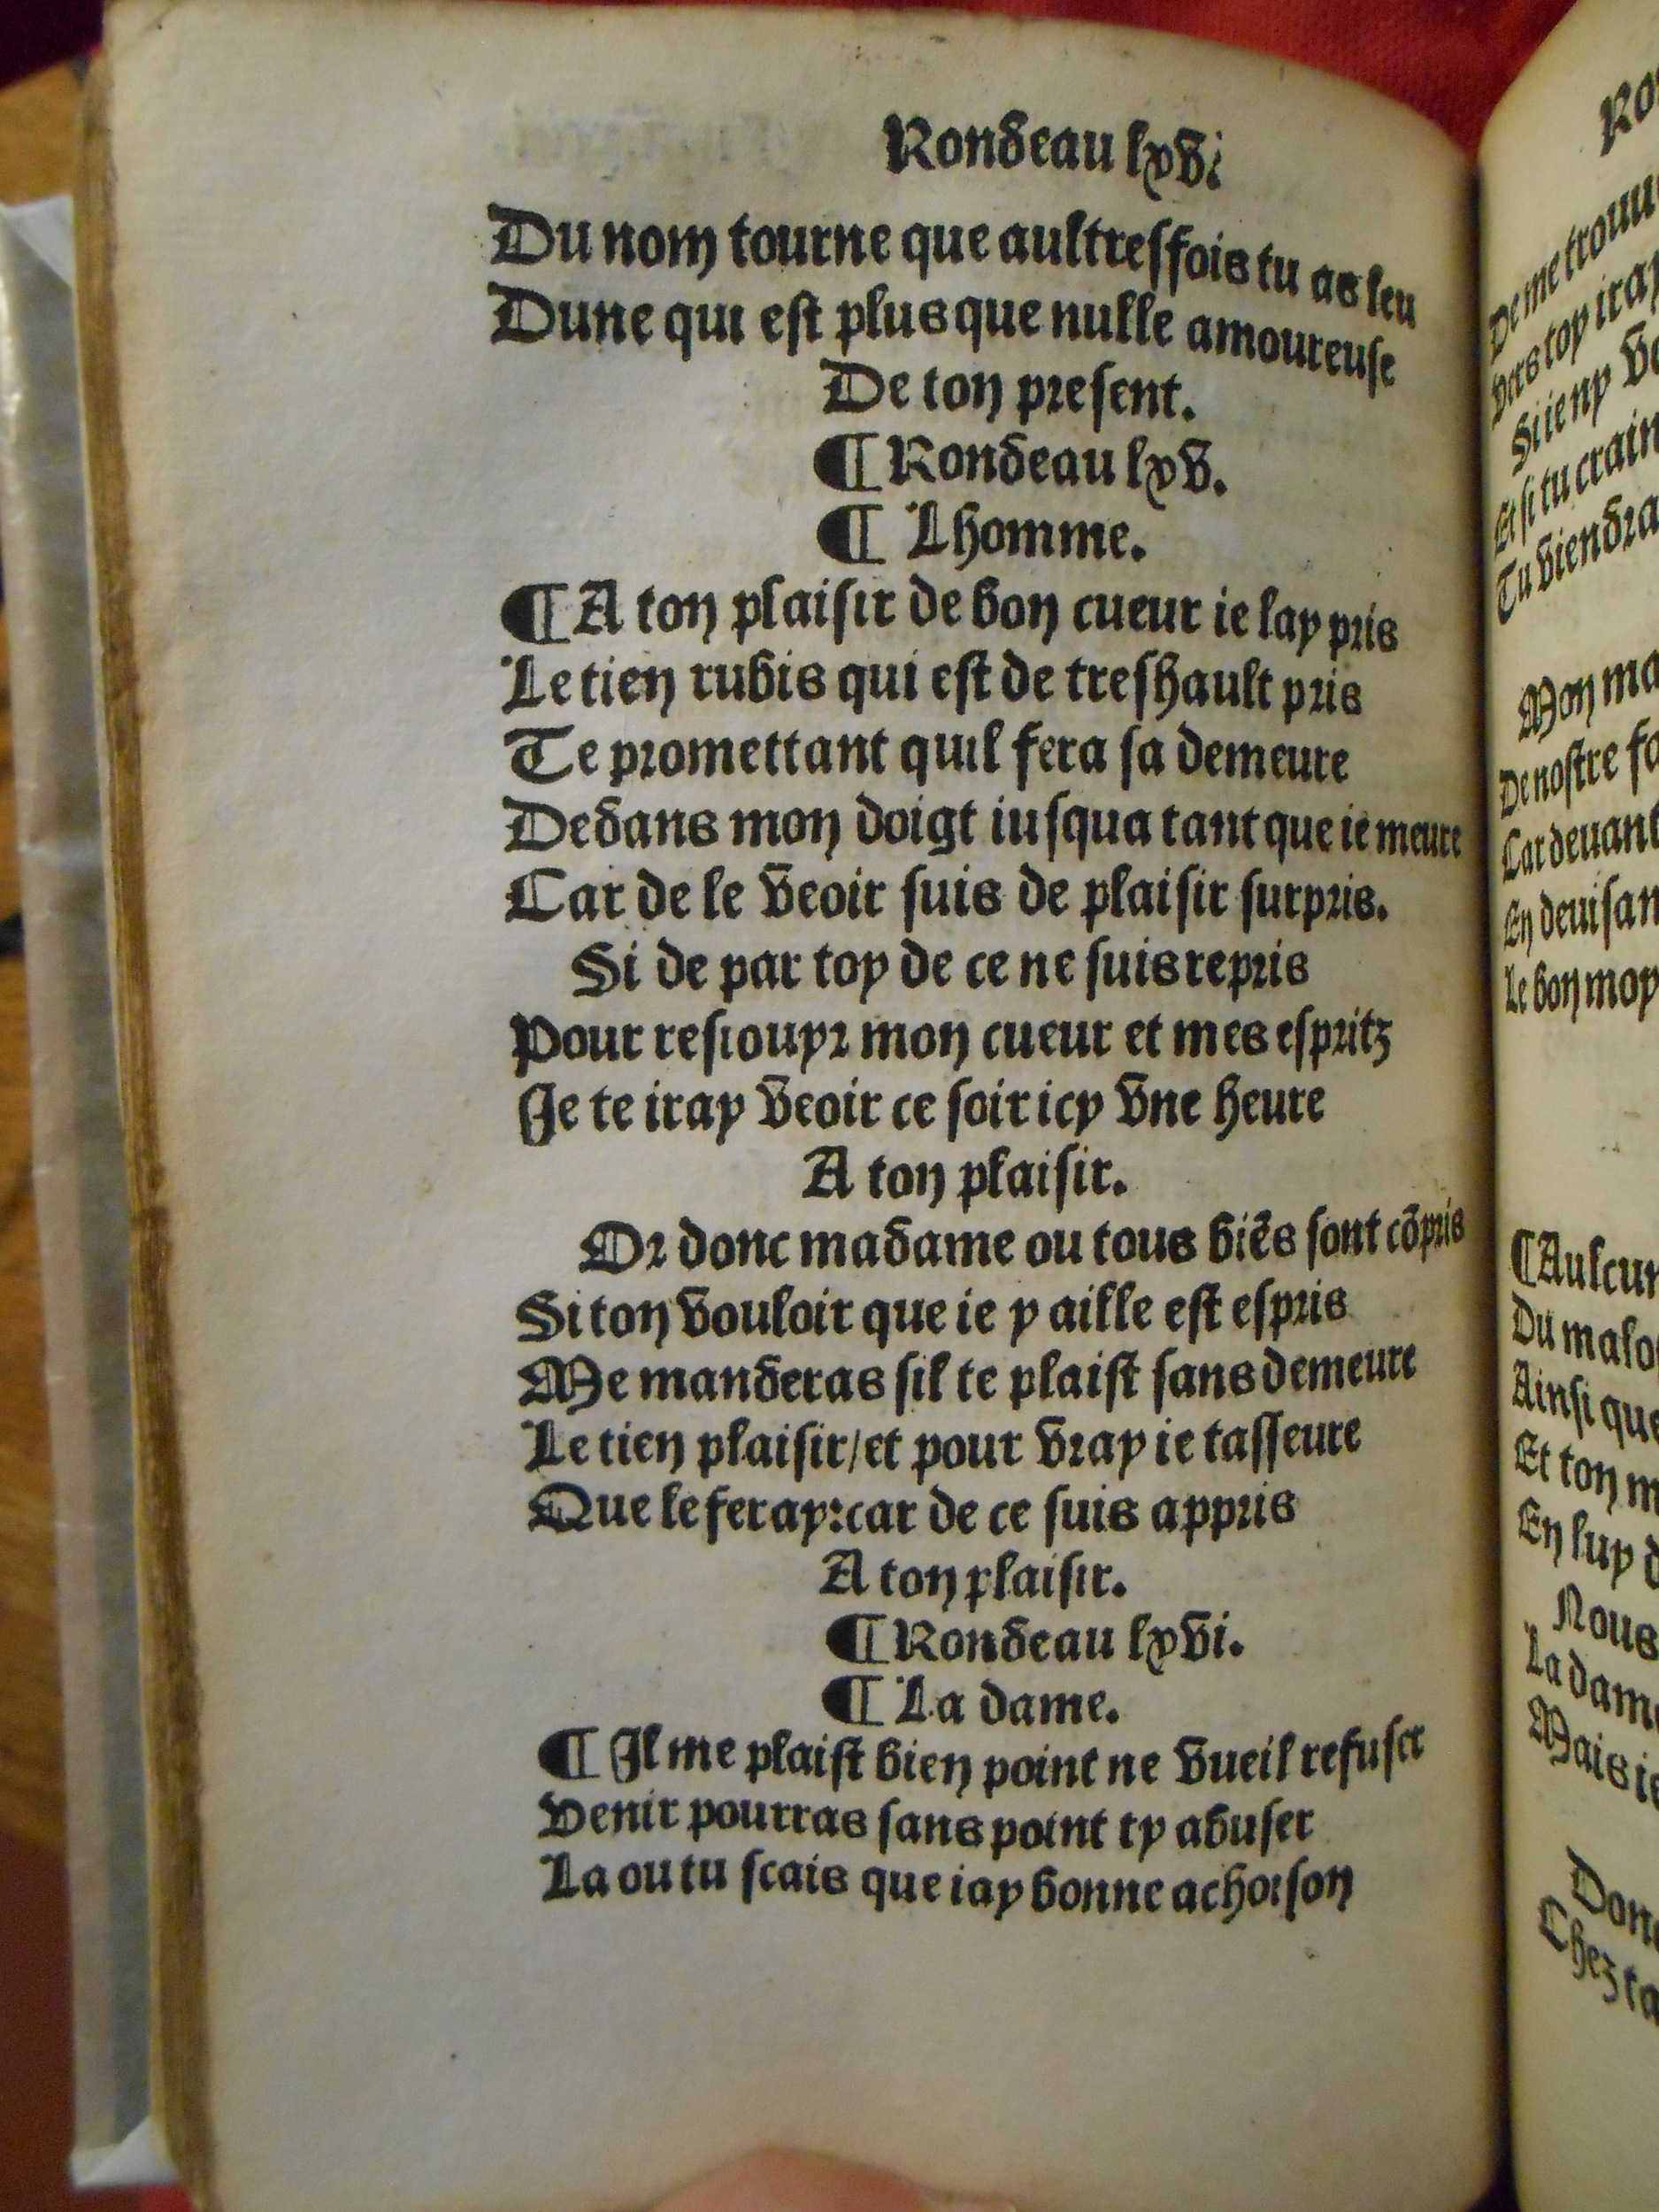 Rondeau lxvi
Du nom tourne que aultresfois tu as leu
Dune qui est plus que nulle amoureuse
De ton present.
¶ Rondeau lxv.
¶ Lhomme.
¶ A ton plaisir de bon cueur ie lay pris
Le tien rubis qui est de treshault pris
Te promettant quil fera sa demeure
Dedans mon doigt iusqua tant que ie meure
Car de le veoir suis de plaisir surpris.
Si de par toy de ce ne suis repris
Pour resiouyr mon cueur et mes espritz
Je te iray veoir ce soir icy vne heure
A ton plaisir.
Or donc madame ou tous biēs sont cōpris
Si ton vouloir que ie y aille est espris
Me manderas sil te plaist sans demeure
Le tien plaisir/et pour vray ie tasseure
Que le feray:car de ce suis appris
A ton plaisir.
¶ Rondeau lxvi.
¶ La dame.
¶ Il me plaist bien point ne vueil refuser
Venir pourras sans point ty abuser
La ou tu scais que iay bonne achoison
De me trouu
vers toy iray
Si ie ny
Et si tu crain
Tu viendra
Mon ma
De nostre
Car deuant
En deuisan
Le bon moy
¶ Aulcun
Du malo
Ainsi que
Et ton
En luy
Nous
La dame
Mais ie
Chez ta